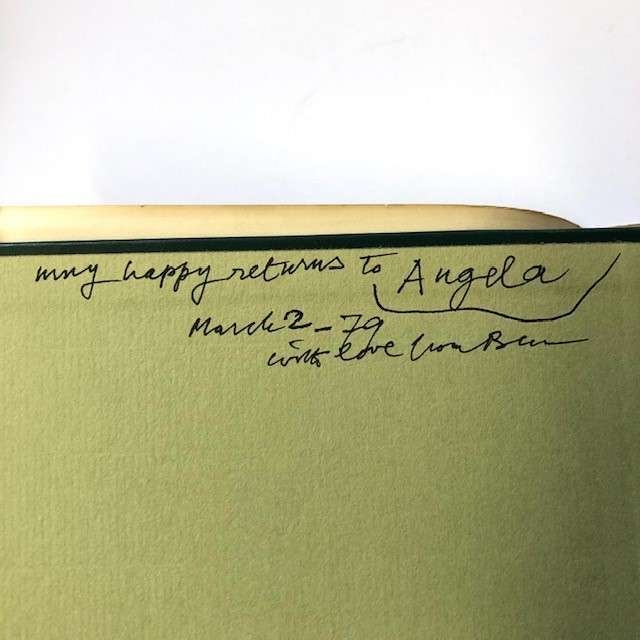 mny happy returns to Angela
March 2 - 79
with love from